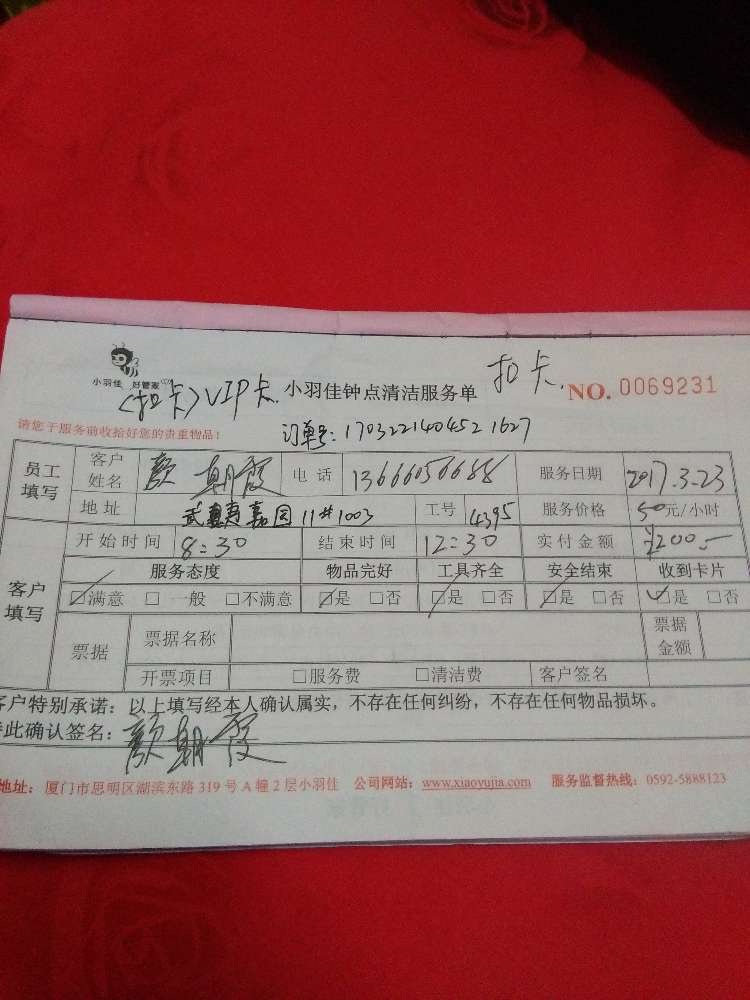 小羽佳 好管家
(扣卡)VIP卡. 小羽佳钟点清洁服务单 扣卡. NO. 0069231
请您于服务前收拾好您的贵重物品! 订单号: 1703221404521627
员工填写 客户姓名 颜朝霞 电话 13666050688 服务日期 2017.3.23
地址 嘉园11#1003 工号 4395 服务价格 50元/小时
客户填写 开始时间 8:30 结束时间 12:30 实付金额 ¥200.-
服务态度 物品完好 工具齐全 安全结束 收到卡片
☑满意 □一般 □不满意 ☑是 □否 ☑是 □否 ☑是 □否 ☑是 □否
票据 票据名称 票据金额
开票项目 □服务费 □清洁费 客户签名
客户特别承诺: 以上填写经本人确认属实, 不存在任何纠纷, 不存在任何物品损坏。
特此确认签名: 颜朝霞
地址: 厦门市思明区湖滨东路 319 号 A 幢 2 层小羽佳 公司网站: www.xiaoyujia.com 服务监督热线: 0592-5888123